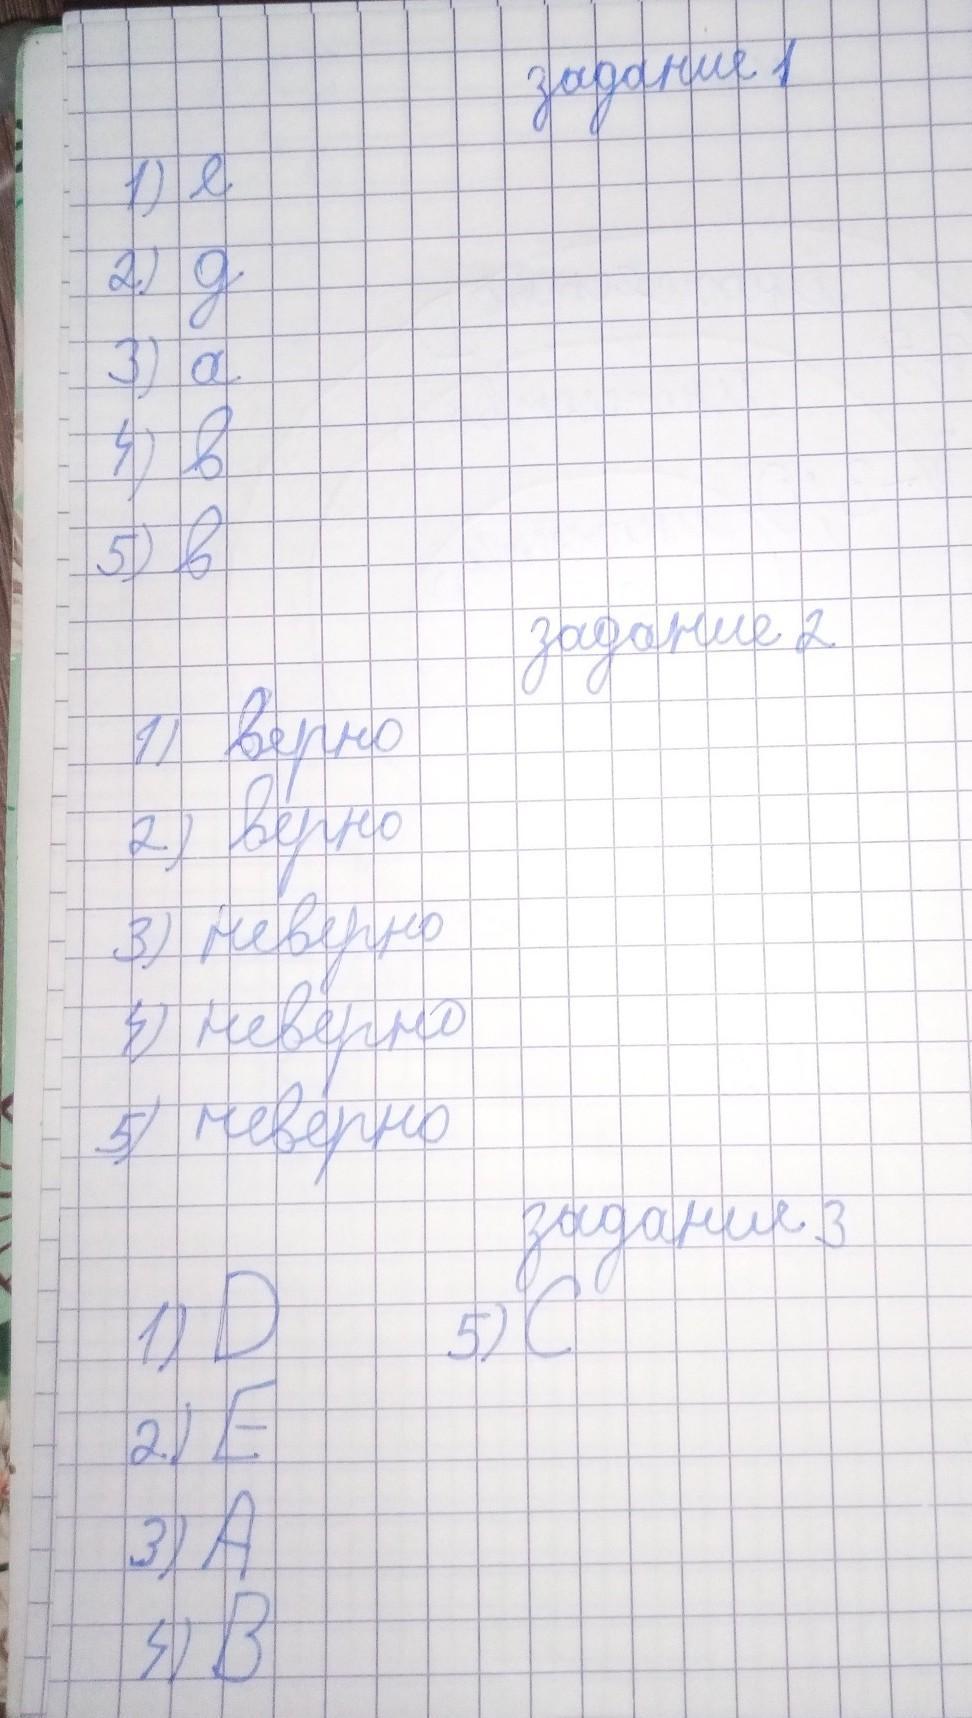 задание 1
1) е
2) д
3) а
4) в
5) в
задание 2
1) верно
2) верно
3) неверно
4) неверно
5) неверно
задание 3
1) D 5) C
2) E
3) A
4) B